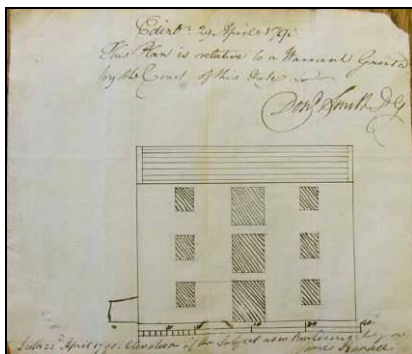 Edinr. 29 April 1790.
This Plan is relative to a Warrant Granted
by the Court of this Date.
Smith D G
10 20 30 40
Leith 22d. April 1790. Elevation of the Subject now Building by me
James